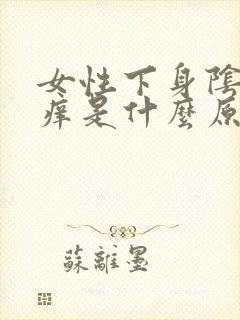 女性下身陰
痒是什麼原
蘇離墨